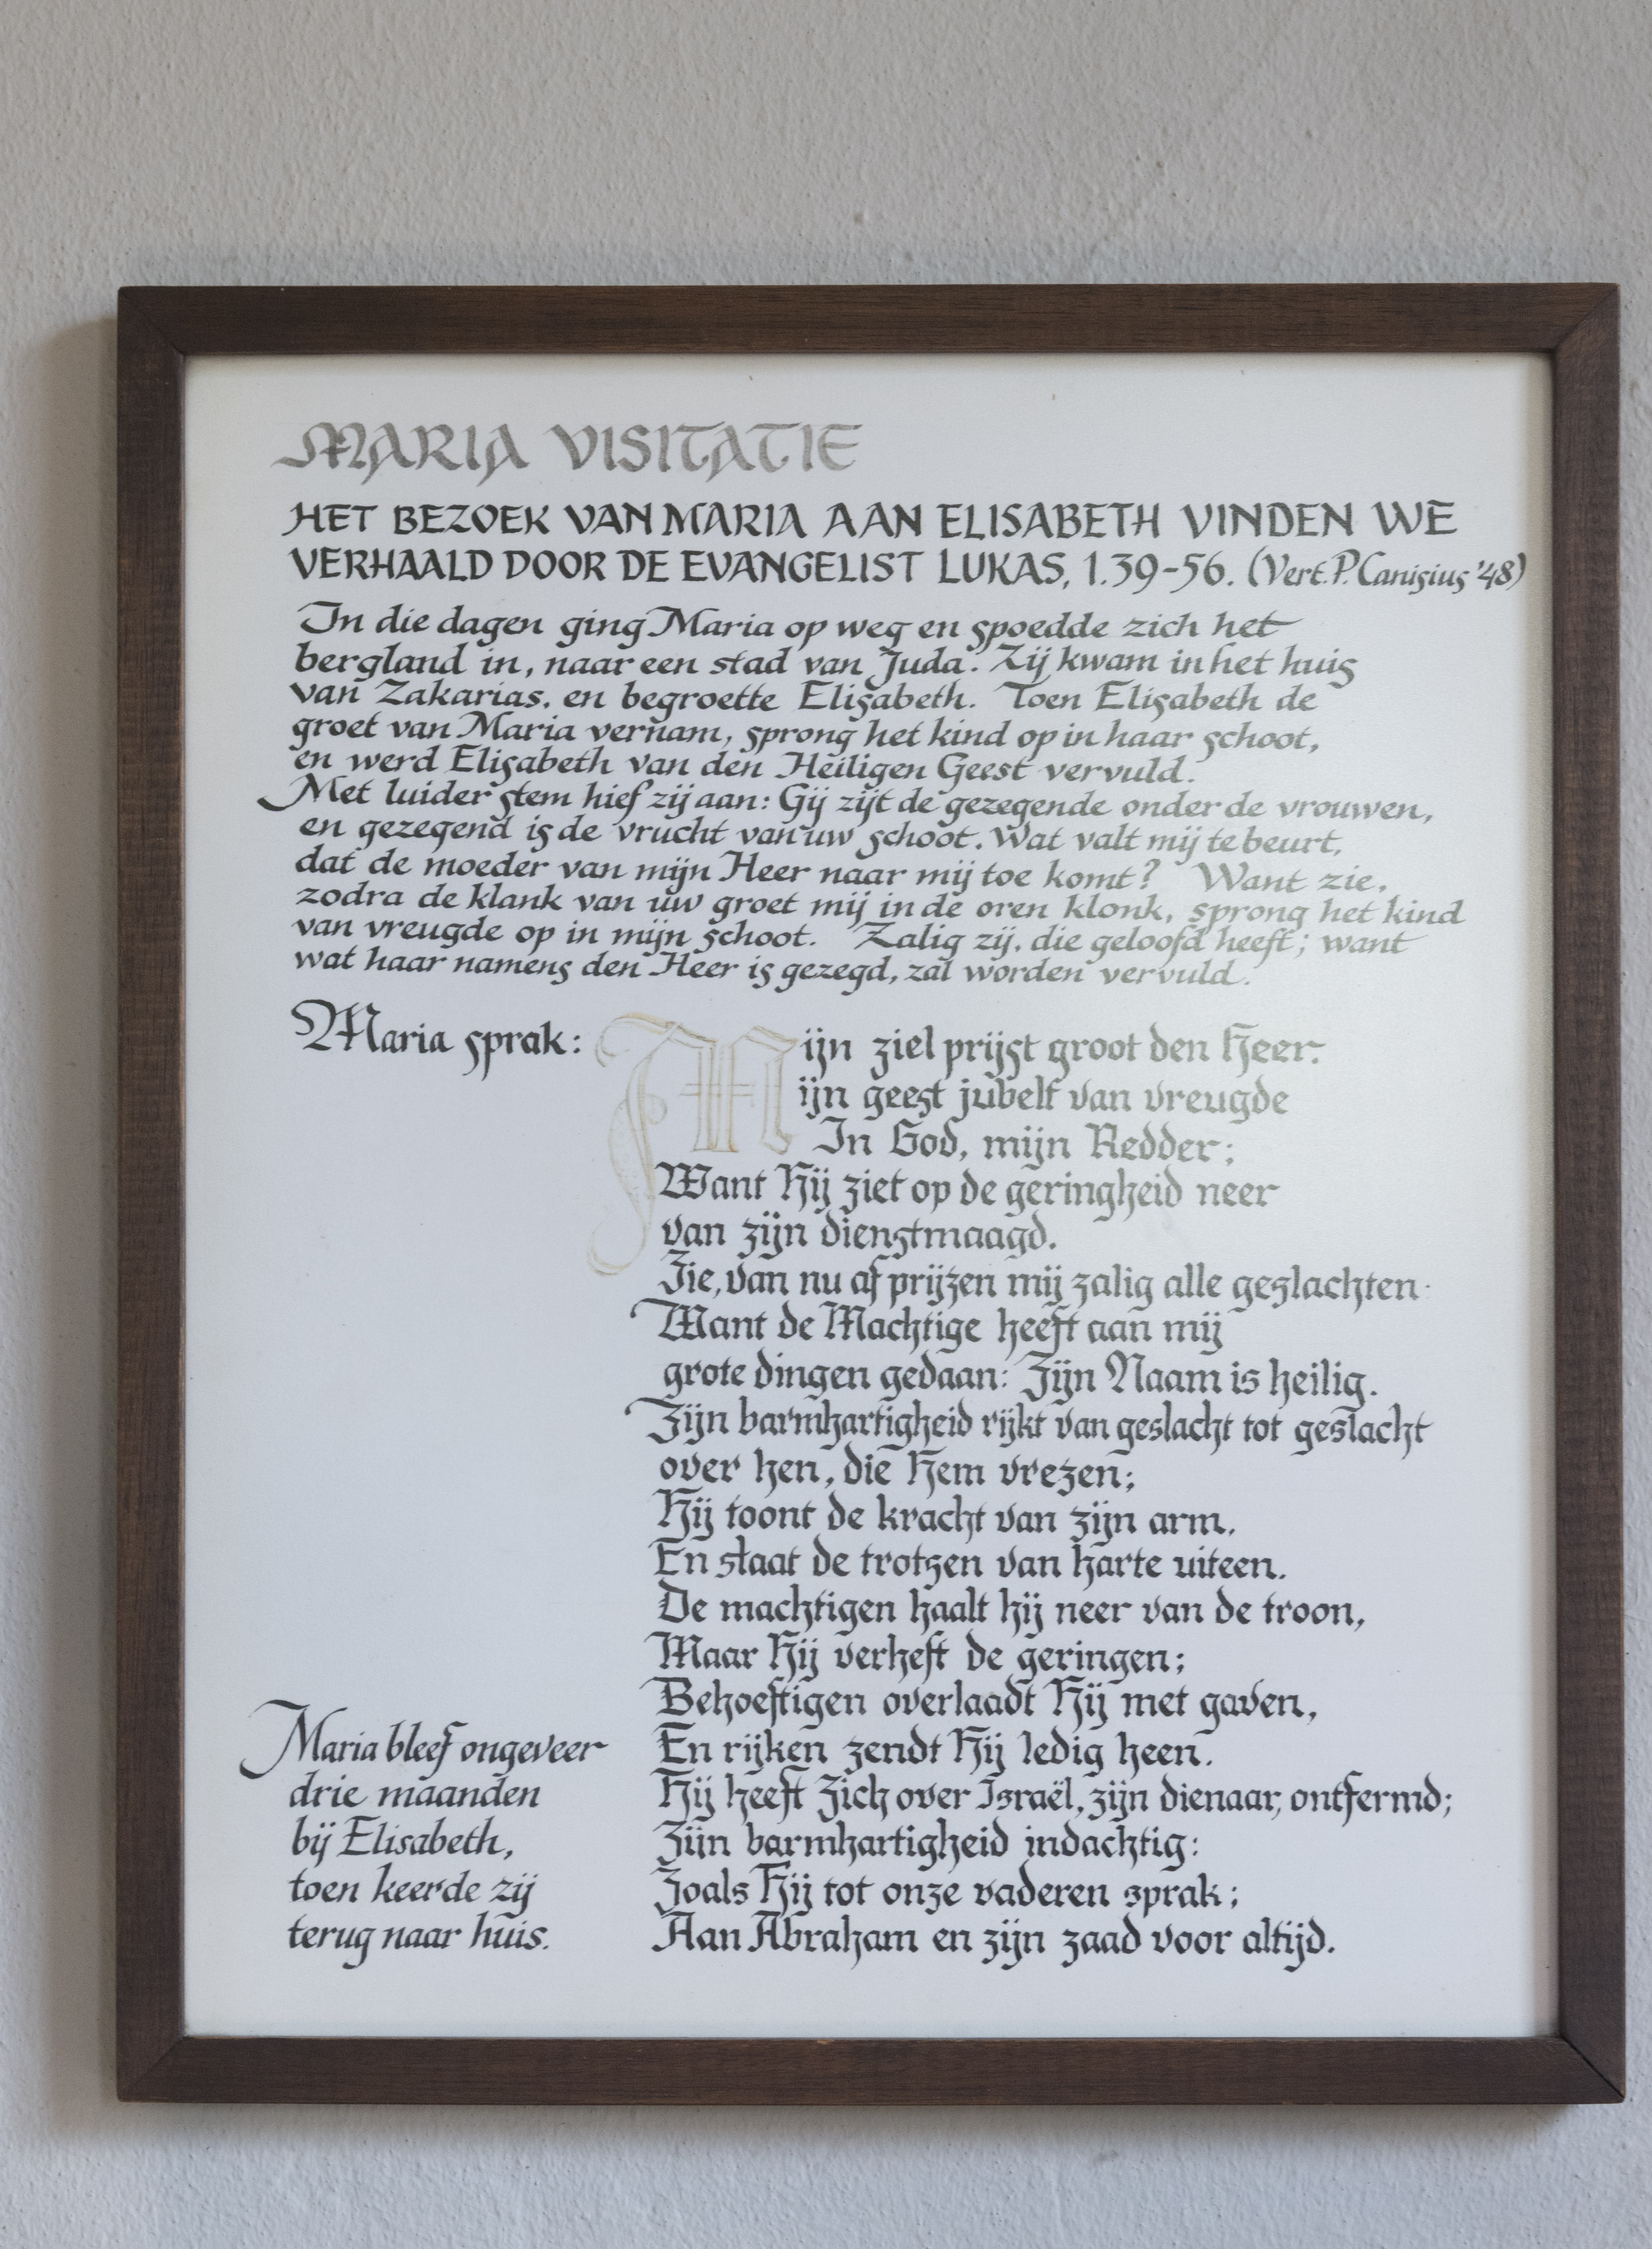 MARIA VISITATIE
HET BEZOEK VAN MARIA AAN ELISABETH VINDEN WE
VERHAALD DOOR DE EVANGELIST LUKAS, 1.39-56. (Vert. P. Canisius '48)
In die dagen ging Maria op weg en spoedde zich het
bergland in, naar een stad van Juda. Zij kwam in het huis
van Zakarias, en begroette Elisabeth. Toen Elisabeth de
groet van Maria vernam, sprong het kind op in haar schoot,
en werd Elisabeth van den Heiligen Geest vervuld.
Met luider stem hief zij aan: Gij zijt de gezegende onder de vrouwen,
en gezegend is de vrucht van uw schoot. Wat valt mij te beurt,
dat de moeder van mijn Heer naar mij toe komt? Want zie,
zodra de klank van uw groet mij in de oren klonk, sprong het kind
van vreugde op in mijn schoot. Zalig zij, die geloofd heeft; want
wat haar namens den Heer is gezegd, zal worden vervuld.
Maria sprak: Mijn ziel prijst groot den Heer.
ijn geest jubelt van vreugde
In God, mijn Redder;
Want Hij ziet op de geringheid neer
van zijn dienstmaagd.
Zie, van nu af prijzen mij zalig alle geslachten.
Want de Machtige heeft aan mij
grote dingen gedaan: Zijn Naam is heilig.
Zijn barmhartigheid rijkt van geslacht tot geslacht
over hen, die Hem vrezen;
Hij toont de kracht van zijn arm,
En slaat de trotsen van harte uiteen.
De machtigen haalt hij neer van de troon,
Maar Hij verheft de geringen;
Behoeftigen overlaadt Hij met gaven,
En rijken zendt Hij ledig heen.
Hij heeft Zich over Israël, zijn dienaar, ontfermd;
Zijn barmhartigheid indachtig:
Zoals Hij tot onze vaderen sprak;
Aan Abraham en zijn zaad voor altijd.
Maria bleef ongeveer
drie maanden
bij Elisabeth,
toen keerde zij
terug naar huis.